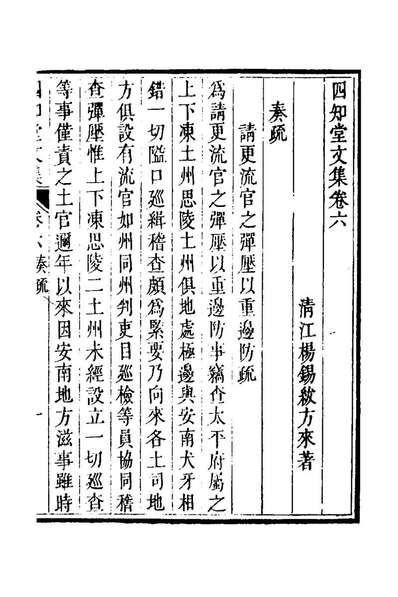 四知堂文集卷六
清江楊錫紱方來著
奏疏
請更流官之彈壓以重邊防疏
為請更流官之彈壓以重邊防事竊查太平府屬之
上下凍土州思陵土州俱地處極邊與安南犬牙相
錯一切隘口廵緝稽查頗為緊要乃向來各土司地
方俱設有流官如州同州判吏目廵檢等員協同稽
查彈壓惟上下凍思陵二土州未經設立一切廵查
等事僅責之土官邇年以來因安南地方滋事雖時
四知堂文集
卷六奏疏
一